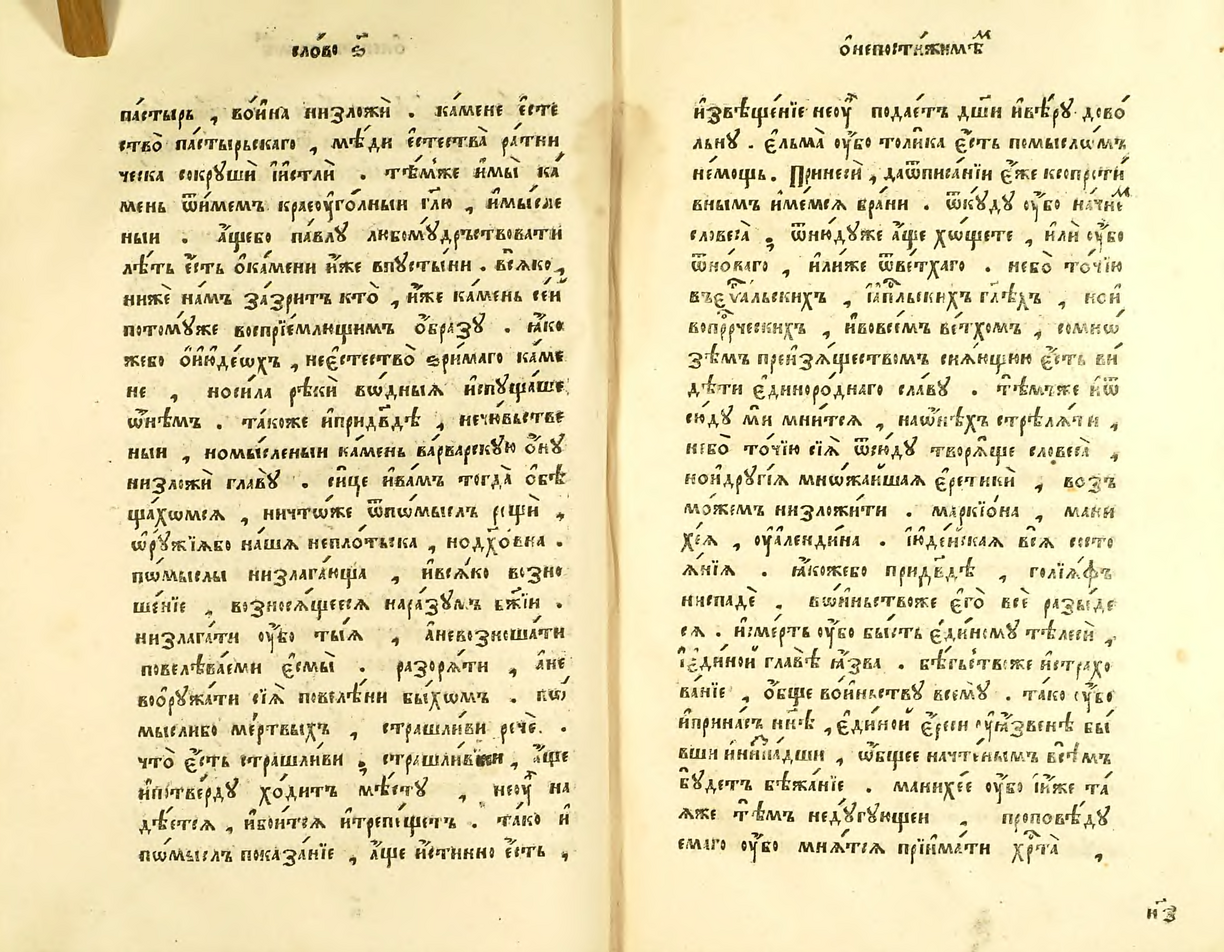 сло́во ѕ҃
па́стырь , во́ина низложѝ . ка́мене є҆стє
ство̀ па́стырьскаго , мѣ́ди є҆стества̀ ра́тни
ческа сокрушѝ и҆истлѝ . тѣ́мже и҆мы̀ ка́
мень ѿи́мемъ краеоуго́лныи гл҃ю , и҆мы́сле
ныи . а҆́щебо па́влу любому́дрьствовати
лѣ́ть є҆́сть ѡ҆ка́мени и҆́же впусты́ни . вся́ко ,
нижѐ на́мъ за́зритъ кто̀ , и҆́же ка́мень се́и
потому́же воспрїе́млющимъ о҆́бразу . ꙗ҆́ко
жебо о҆ию҆де́ѡхъ , неє҆стество̀ зри́маго ка́ме
не , носи́ла рѣ́ки вѡ́дныѧ и҆спуща́ше
ѡ҆не́мъ . та́коже и҆придв҃дѣ , нечю́вьстве
ныи , номы́сленыи ка́мень ва́рварскую о҆́ну
низложѝ главу̀ . си́це и҆ва́мъ тогда̀ о҆бѣ
ща́хѡмсѧ , ничто́же ѿпѡ́мыслъ рещѝ ,
ѡ҆ру́жїѧбо на́ша непло́тьска , но дх҃о́вна .
пѡ́мыслы низлага́юща , и҆вся́ко возно
ше́нїе , возносѧ́щеесѧ нара́зумъ бж҃їи .
низлага́ти оу҆́бо ты́ѧ , а҆невозноша́ти
повелѣва́еми є҆смы̀ . разорѧ́ти , а҆не
воо҆ружа́ти сїѧ̀ повелѣ́ни бы́хѡмъ . пѡ́
мыслибо ме́ртвыхъ , страшли́ви речѐ .
что̀ є҆́сть страшли́ви ; страшли́выи , а҆́ще
и҆потве́рду хо́дитъ мѣ́сту , неоу҆ на
дѣ́етсѧ , и҆бои́тсѧ и҆трепе́щетъ . та́ко и҆
пѡ́мыслъ показа́нїе , а҆́ще и҆́стинно є҆́сть ,
о҆непости́жимѣм
и҆звѣще́нїе неоу҆ подае́тъ дш҃и и҆вѣ́ру дово́
льну . є҆льма̀ оу҆́бо толи́ка є҆́сть помысло́мъ
не́мощь . Принесѝ , даѿписа́нїи є҆́же ксопроти́
внымъ и҆́мемсѧ бра́ни . ѿку́ду оу҆́бо на́чнем
словеса̀ ; ѿню́дуже а҆́ще хо́щете , и҆лѝ оу҆́бо
ѿно́ваго , и҆ли́же ѿве́тхаго . небо̀ то́чїю
въеѵ҃а́льскихъ , и҆а҆пⷭ҇льскихъ гл҃ѣхъ , но и҆
вопрⷪ҇ро́ческихъ , и҆вовсе́мъ ве́тхомъ , сомно́
зѣмъ преи́зѧществомъ сиѧ́ющюю є҆́сть ви́
дѣти є҆диноро́днаго сла́ву . тѣ́мъже и҆ѿ
сю́ду ми мни́тсѧ , наѡ҆́нѣхъ стрѣлѧ́ти ,
небо̀ то́чїю сїѧ̀ ѿсю́ду творѧ́ще словеса̀ ,
но и҆други́ѧ мно́жаишаѧ є҆ретикѝ , возъ
мо́жемъ низложи́ти . маркїо́на , мани
хе́ѧ , оу҆але́ндина . і҆юде́йскаѧ всѧ̀ состо
ѧ́нїѧ . ꙗ҆́кожебо придв҃дѣ , голїѧ́фъ
ниспадѐ . во́иньствоже є҆го̀ всѐ разы́де
сѧ . и҆сме́рть оу҆́бо бы́сть є҆ди́ному тѣ́леси ,
і҆є҆ди́ной главѣ̀ ꙗ҆́зва . бѣ́гьствже и҆страхо
ва́нїе , ѻ҆́бще во́иньству всему̀ . та́ко оу҆́бо
и҆прина́съ нн҃ѣ , є҆ди́ной є҆́реси оу҆ꙗ҆́звенѣ бы́
вши и҆ни́спадши , ѡ҆́бщее начте́нымъ всѣ́мъ
бу́детъ бѣжа́нїе . манихе́е оу҆́бо і҆и҆́же та́
ѧже тѣ́мъ неду́гующеи , проповѣ́ду
емаго оу҆́бо мнѧ́тсѧ прїима́ти хрⷭ҇та̀ ,
н҃з